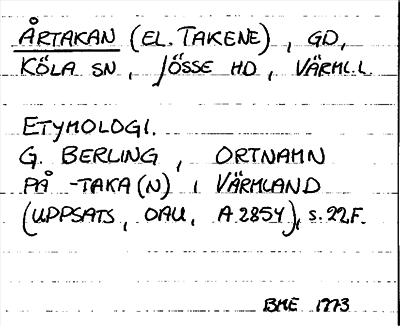 ÅRTAKAN (EL. TAKENE), GD,
KÖLA SN, JÖSSE HD, VÄRML.L
ETYMOLOGI.
G. BERLING, ORTNAMN
PÅ -TAKA(N) I VÄRMLAND
(UPPSATS, OAU, A.2854), S.22F.
BME 1973